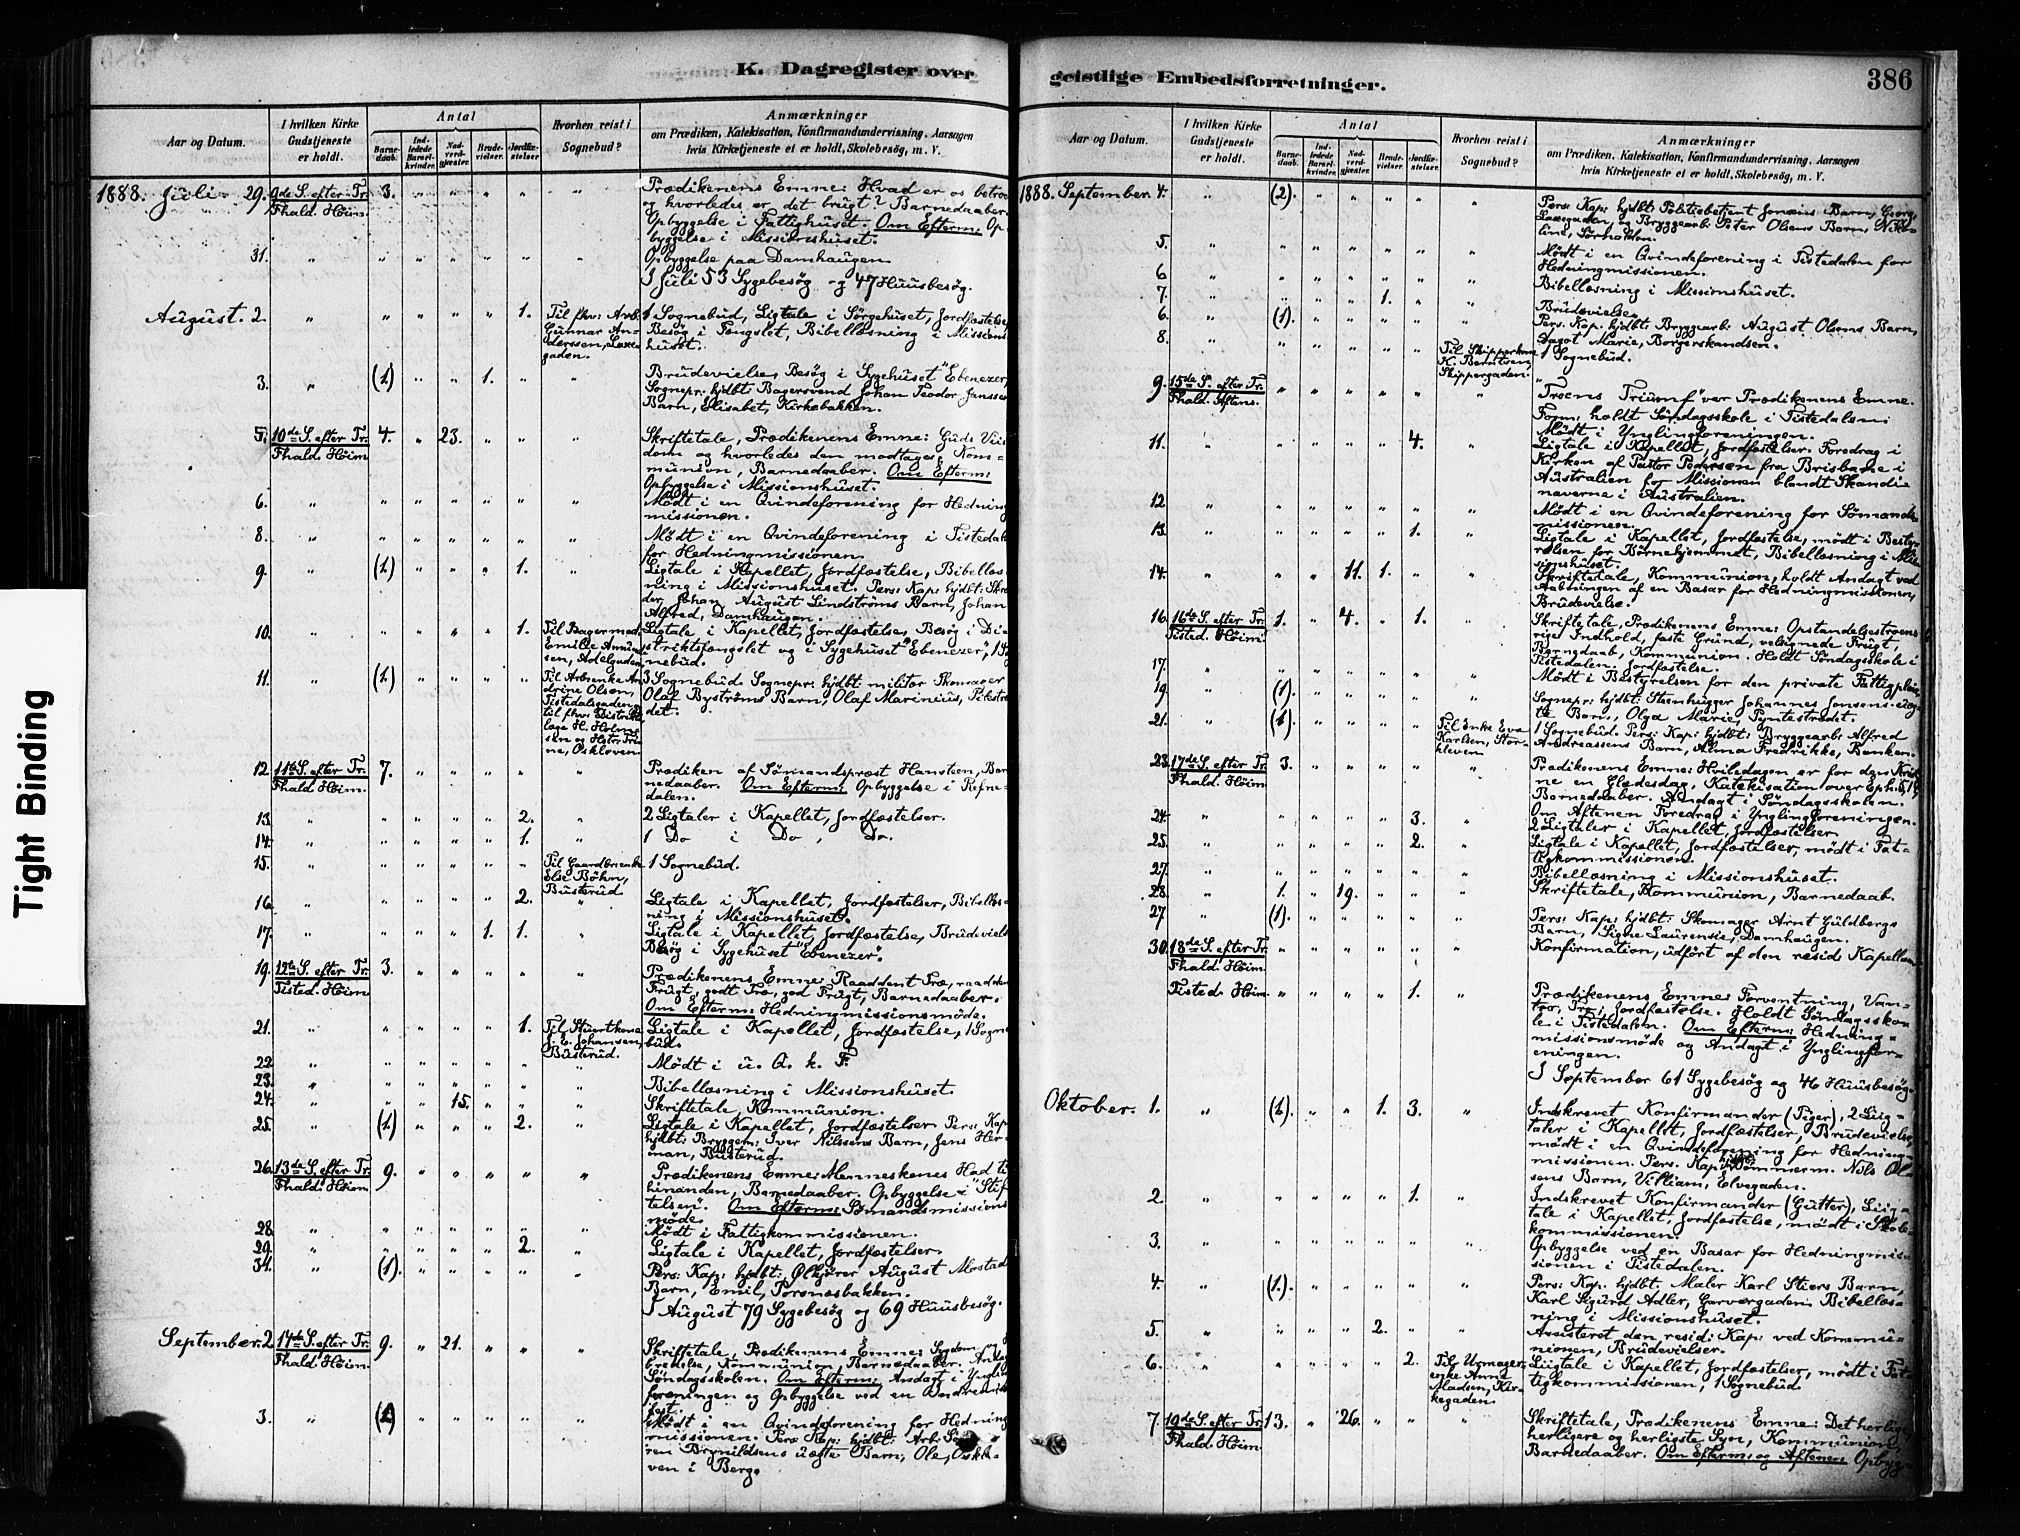 K. Dagregister over
Aar og Datum.
I hvilken Kirke Gudstjeneste er holdt.
Antal
Barnedaab.
Indledede Barselkvinder.
Nadverdgjæster.
Brudevielser.
Jordfæstelser
Hvorhen reist i Sognebud?
Anmærkninger
om Prædiken, Katekisation, Konfirmandundervisning, Aarsagen
hvis Kirketjeneste ei er holdt, Skolebesøg, m. V.
1888. Juli 29. 9de S. efter Tr. 3. Prædikenens Emne: Hvad er os betroe
Fhald. Høim. og hvorledes er det brugt? Barnedaaber.
Opbyggelse i Fattighuset. Om Efterm: Op-
byggelse i Missionshuset.
31. Opbyggelse paa Damhaugen.
I Juli 53 Sygebesøg og 47 Huusbesøg.
August. 2. 1. Til fhv: Arb. 1 Sognebud, Ligtale i Sørgehuset, Jordfæstelse,
Gunnar An- Besøg i Fængslet, Bibellæsning i Missions
derssen, Laxe- huset.
gaden.
3. (1.) 1. Brudevielse, Besøg i Sygehuset "Ebenezer,
Sognepr: hjdbt: Bagersvend Johan Teodor Jansse
Barn, Elisabet, Kirkebakken.
5. 10de S. efter Tr. 4. 23. Skriftetale, Prædikenens Emne: Guds Viis
Fhald. Høim dom og hvorledes den modtages, Kom-
munion, Barnedaaber. Om Efterm:
Opbyggelse i Missionshuset.
6. Mødt i en Qvindeforening for Hedning
missionen.
8. Mødt i en Qvindeforening i Tistedal
for Hedningmissionen.
9. (1.) 1. Ligtale i Kapellet, Jordfæstelse, Bibellæs
ning i Missionshuset. Pers: Kap: hjdbt: Skræ
der Johan August Lindstrøms Barn, Johan
Alfred, Damhaugen.
10. 1. Til Bagermad. Ligtale i Kapellet, Jordfæstelse, Besøg i Di-
Emilie Amund- striktsfængslet og i Sygehuset "Ebenezer", 1 So
sen, Adelgaden nebud.
11. (1.) Til Arbenke An- 3 Sognebud. Sognepr: hjdbt: militær Skomager
drine Olsen, Olaf Bystrøms Barn, Olaf Marinius,
Tistedalsgaden, det.
til fhv: Distrikts-
læge H. Holm-
sen og
ne, Oskleven
12. 11te S. efter Tr. 7. Prædiken af Sømandsprest Hansteen, Bar
Fhald. Høim. nedaaber. Om Efterm: Opbyggelse i Refne-
dalen.
13. 2. 2 Ligtaler i Kapellet, Jordfæstelser.
14. 1. 1 Do i Do, Do.
15. Til Gaardbrenke 1 Sognebud.
Else Bøhn,
Busterud.
16. 2. Ligtale i Kapellet, Jordfæstelser, Bibellæs
ning i Missionshuset.
17. 1. 1. Ligtale i Kapellet, Jordfæstelse, Brudeviels
Besøg i Sygehuset "Ebenezer".
19. 12te S. efter Tr. 3. Prædikenens Emne: Raaddent Træ, raadde
Tisted. Høim Frugt, godt Træ, god Frugt, Barnedaaber.
Om Efterm: Hedningmissionsmøde.
21. 1. Til Stuertkone Ligtale i Kapellet, Jordfæstelse, 1 Sogne
J. E. Johansen, bud.
Busterud.
22. Mødt i u. Q. k. F.
23. Bibellæsning i Missionshuset.
24. 15. Skriftetale, Kommunion.
25. (1.) 2. Ligtale i Kapellet, Jordfæstelser. Pers: Kap
hjdbt: Bryggem: Iver Nilssens Barn, Jens Her-
man, Busterud.
26. 13de S. efter Tr. 9. Prædikenens Emne: Menneskenes Had ti
Fhald. Høim hinanden, Barnedaaber. Opbyggelse i "Stif
telsen". Om Efterm: Sømandsmissions
møde.
28. Mødt i Fattigkommissionen.
29. 2. Ligtale i Kapellet, Jordfæstelser.
31. (1). Pers: Kap: hjdbt: Ølkjører August
Barn, Emil, Torsnæsbakken.
I August 79 Sygebesøg og 69 Huusbesøg.
September. 2. 14de S. efter Tr. 9. 21. Skriftetale, Prædikenens Emne: Sygdom og
Fhald. Høim. bredelse, Kommunion, Barnedaaber. Andag
Søndagsskolen. Om Efterm: Andagt i Yngling
foreningen og Opbyggelse ved en
fest.
3. (1) Mødt i en Qvindeforening for Hedning
missionen. Pers: Kap: hjdbt: Arb: Sø-
ren Brynildsens uægte Barn, Ole, Oskle-
ven i Berg.
geistlige Embedsforretninger.
386
Aar og Datum.
I hvilken Kirke Gudstjeneste er holdt.
Antal
Barnedaab.
Indledede Barselkvinder.
Nadverdgjæster.
Brudevielser.
Jordfæstelser.
Hvorhen reist i Sognebud?
Anmærkninger
om Prædiken, Katekisation, Konfirmandundervisning, Aarsagen
hvis Kirketjeneste ei er holdt, Skolebesøg, m. V.
1888. September. 4. (2). Pers: Kap: hjdbt: Politibetjent Jensens Barn, Georg,
Laxegaden, og Bryggearb: Peter Olsens Barn, Niko-
line, Sørhalden.
5. Mødt i en Qvindeforening i Tistedalen for
Hedningmissionen.
6. Bibellæsning i Missionshuset.
7. 1. Brudevielse.
6. (1). Pers. Kap. hjdbt: Bryggearb: August Olsens Barn,
Dagot Marie, Borgerskandsen.
8. Til Skipperkone 1 Sognebud.
K. Berntsen,
Skippergaden.
9. 15de S. efter Tr. "Troens Triumf" var Prædikenens Emne.
Fhald. Aftens. Form: holdt Søndagsskole i Tistedalen.
Mødt i Ynglingforeningen.
11. 4. Ligtale i Kapellet, Jordfæstelser. Foredrag i
Kirken af Pastor Pedersen fra Brisbane i
Australien for Missionen blandt Skandi-
naverne i Australien.
12. Mødt i en Qvindeforening for Sømands-
missionen.
13. 1. Ligtale i Kapellet, Jordfæstelse, mødt i Besty-
relsen for Børnehjemmet, Bibellæsning i Mis-
sionshuset.
14. 11. 1. Skriftetale, Kommunion, holdt Andagt ved
Aabningen af en Basar for Hedningmissionen,
Brudevielse.
16. 16de S. efter Tr. 1. 4. 1. Skriftetale, Prædikenens Emne: Opstandelsestroens
Tisted. Høim. rige Indhold, faste Grund, velsignede Frugt,
Barnedaab, Kommunion. Holdt Søndagsskole i
Tistedalen. Jordfæstelse.
17. Mødt i Bestyrelsen for den private Fattigpleie.
19. (1). Sognepr: hjdbt: Steenhugger Johannes Jensens uæg-
te Barn, Olga Marie, Tyntestrædet.
21. (1). Til Enke Eva 1 Sognebud. Pers: Kap: hjdbt: Bryggearb: Alfred
Karlsen, Stor- Andreassens Barn, Alma Fredrikke, Banken.
kleven.
23. 17de S. efter Tr. 3. Prædikenens Emne: Hviledagen er for den Krist-
Fhald. Høim. ne en Glædesdag, Katekisation over Eph. 5, 15,
Barnedaaber. Andagt i Søndagsskolen.
Om Aftenen Foredrag i Ynglingforeningen.
24. 3. 2 Ligtaler i Kapellet, Jordfæstelser.
25. 2. Ligtale i Kapellet, Jordfæstelser, mødt i Fat-
tigkommissionen.
27. Bibellæsning i Missionshuset.
28. 1. 19. Skriftetale, Kommunion, Barnedaab.
27. (1). Pers: Kap: hjdbt: Skomager Arnt Guldbergs
Barn, Signe Laurensie, Damhaugen.
30. 18de S. efter Tr. Konfirmation, udført af den resid: Kapellan.
Fhald. Høim.
Tisted. Høim. 1. Prædikenens Emne: Forventning, Van-
tro, Tro, Jordfæstelse. Holdt Søndagssko-
le i Tistedalen. Om Efterm: Hedning-
missionsmøde og Andagt i Ynglingfor-
eningen.
I September 61 Sygebesøg og 46 Huusbesøg.
Oktober. 1. (1.) 1. 3. Indskrevet Konfirmander (Piger), 2 Lig-
taler i Kapellet, Jordfæstelser, Brudevielse,
mødt i en Qvindeforening for Hedning-
missionen. Pers. Kap: hjdbt: Tømmerm. Nils Ol-
sens Barn, Villiam, Elvegaden.
2. 1. Indskrevet Konfirmander (Gutter), Lig-
tale i Kapellet, Jordfæstelse, mødt i Skole-
kommissionen.
3. Opbyggelse ved en Basar for Hedningmis-
sionen i Tistedalen.
4. (1.) Pers: Kap. hjdbt. Maler Karl Stiers Barn,
Karl Sigurd Adler, Garvergaden. Bibellæs-
ning i Missionshuset.
5. 2. Assisteret den resid: Kap: ved Kommu-
nionen, Brudevielser.
6. 2. Til Urmager- Ligtale i Kapellet, Jordfæstelser, mødt i Fat-
enke Anne tigkommissionen, 1 Sognebud.
Madsen, Kir-
kegaden.
7. 19de S. efter Tr. 13. 26. Skriftetale, Prædikenens Emne: Det herlige,
Fhald. Høim. herligere og herligste Syn, Kommunion,
Barnedaaber. Om Efterm: og Aftenen: Opbyg-
Tight Binding